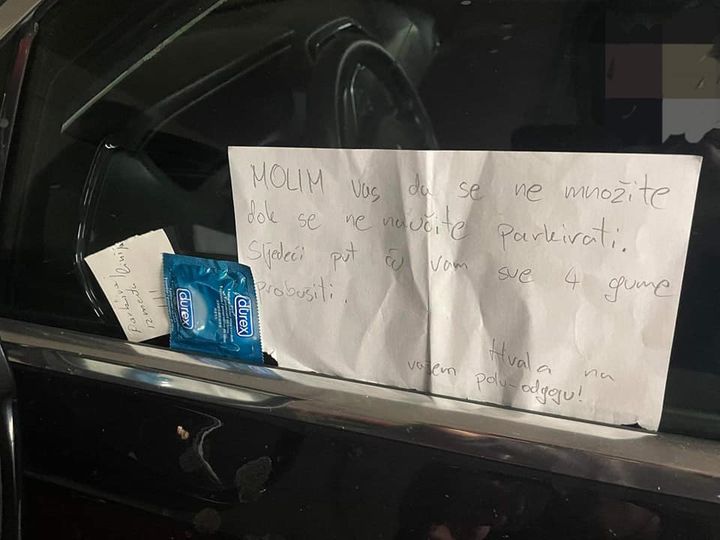 MOLIM vas da se ne množite
dok se ne naučite parkirati.
Sljedeći put ću vam sve 4 gume
probušiti.
Hvala na
vašem polu-odgoju!
durex
durex
između